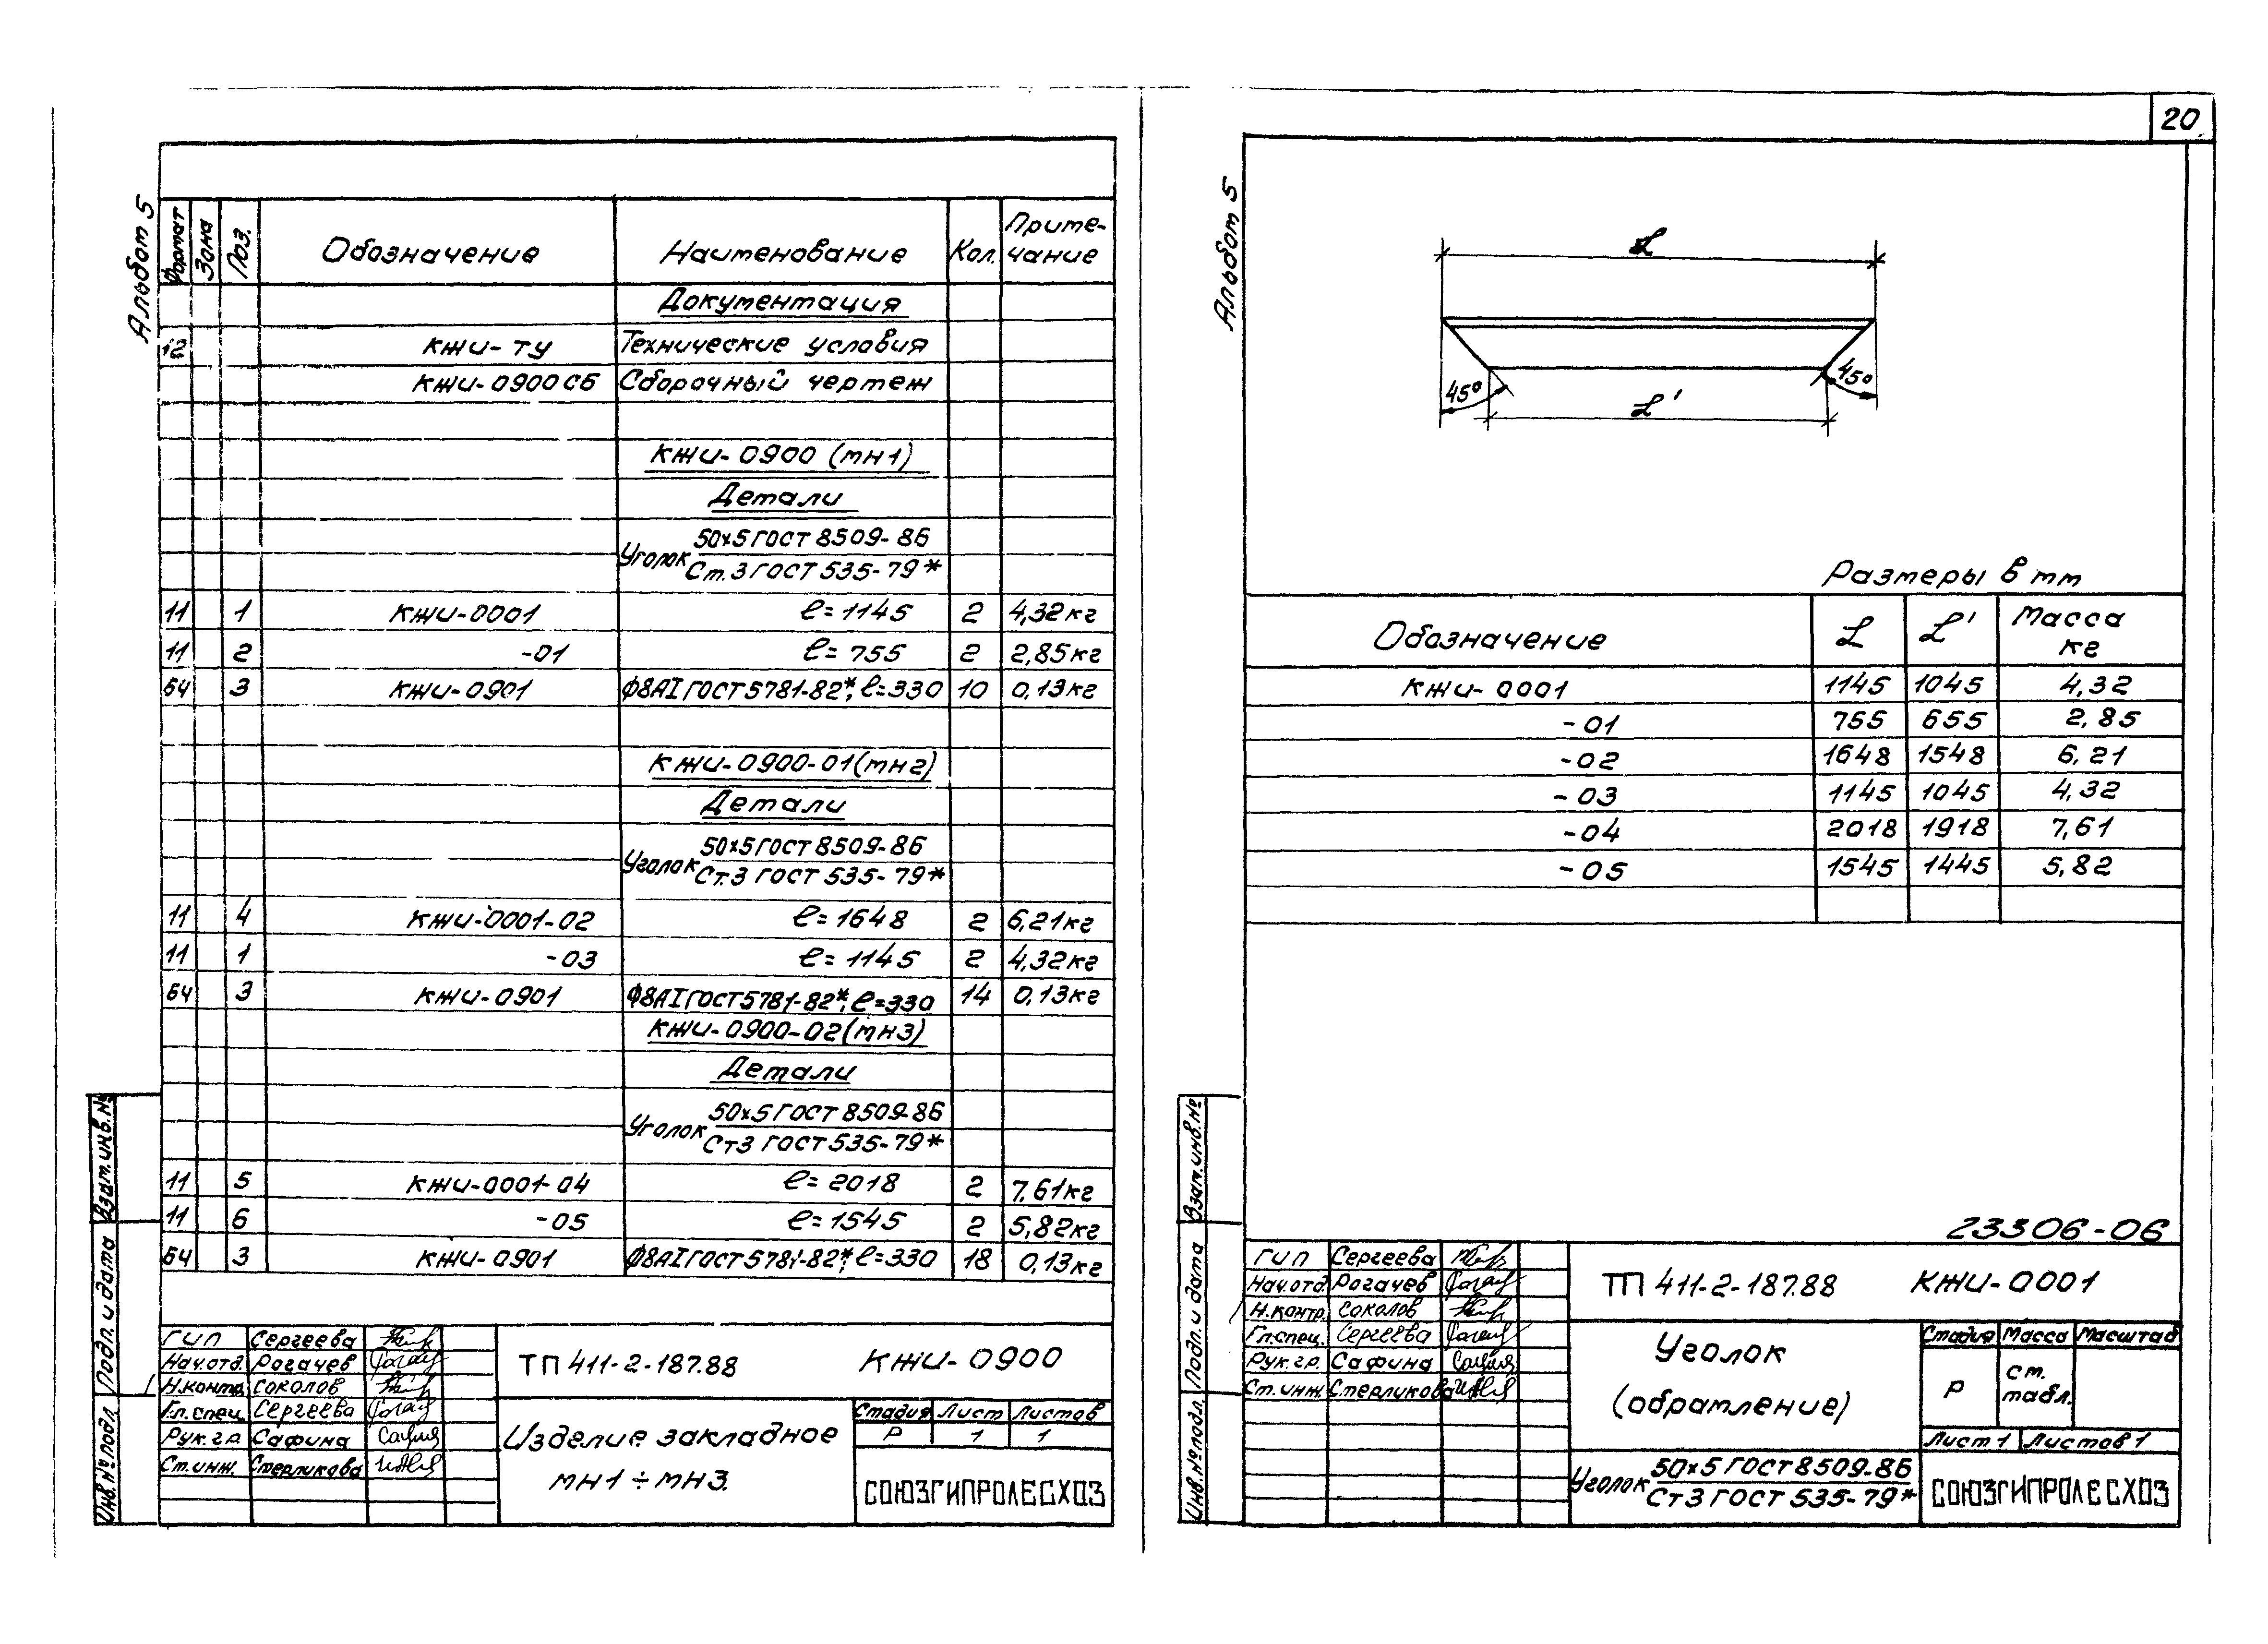 Альбом 5
Формат Зона Поз. Обозначение Наименование Кол. Приме-
чание
Документация
12 КЖИ-ТУ Технические условия
КЖИ-0900СБ Сборочный чертеж
КЖИ-0900 (МН1)
Детали
Уголок 50×5 ГОСТ 8509-86
Ст.3 ГОСТ 535-79*
11 1 КЖИ-0001 ℓ=1145 2 4,32кг
11 2 -01 ℓ=755 2 2,85кг
БЧ 3 КЖИ-0901 Ф8АI ГОСТ 5781-82*, ℓ=330 10 0,13кг
КЖИ-0900-01(МН2)
Детали
Уголок 50×5 ГОСТ 8509-86
Ст.3 ГОСТ 535-79*
11 4 КЖИ-0001-02 ℓ=1648 2 6,21кг
11 1 -03 ℓ=1145 2 4,32кг
БЧ 3 КЖИ-0901 Ф8АI ГОСТ 5781-82*, ℓ=330 14 0,13кг
КЖИ-0900-02(МН3)
Детали
Уголок 50×5 ГОСТ 8509-86
Ст3 ГОСТ 535-79*
11 5 КЖИ-0001-04 ℓ=2018 2 7,61кг
11 6 -05 ℓ=1545 2 5,82кг
БЧ 3 КЖИ-0901 Ф8АI ГОСТ 5781-82*, ℓ=330 18 0,13кг
Взам.инв.№
Подп. и дата
Инв.№подл.
ГИП Сергеева
Нач.отд. Рогачев
Н.контр. Соколов
Гл.спец. Сергеева
Рук.гр. Сафина
Ст.инж. Стерликова
ТП 411-2-187.88 КЖИ-0900
Изделие закладное
МН1÷МН3.
Стадия Лист Листов
Р 1 1
СОЮЗГИПРОЛЕСХОЗ
20
Альбом 5
L
45° 45°
L'
Размеры в мм
Обозначение L L' Масса
кг
КЖИ-0001 1145 1045 4,32
-01 755 655 2,85
-02 1648 1548 6,21
-03 1145 1045 4,32
-04 2018 1918 7,61
-05 1545 1445 5,82
23306-06
Взам.инв.№
Подп. и дата
Инв.№подл.
ГИП Сергеева
Нач.отд. Рогачев
Н.контр. Соколов
Гл.спец. Сергеева
Рук.гр. Сафина
Ст.инж. Стерликова
ТП 411-2-187.88 КЖИ-0001
Уголок
(обрамление)
Стадия Масса Масштаб
Р см.
табл.
Лист 1 Листов 1
Уголок 50×5 ГОСТ 8509-86
Ст3 ГОСТ 535-79*
СОЮЗГИПРОЛЕСХОЗ